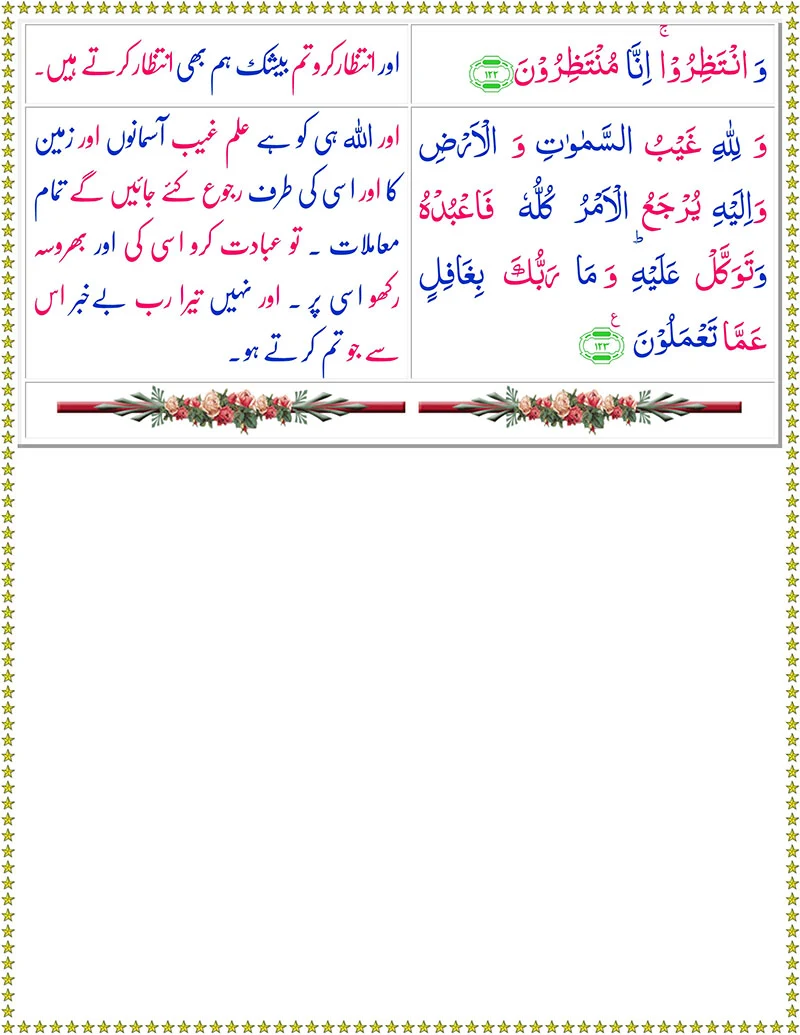 وَ انْتَظِرُوْا ۚ اِنَّا مُنْتَظِرُوْنَ ۝۱۲۲
اور انتظار کرو تم بیشک ہم بھی انتظار کرتے ہیں۔
وَ لِلّٰهِ غَیْبُ السَّمٰوٰتِ وَ الْاَرْضِ
وَاِلَیْهِ یُرْجَعُ الْاَمْرُ كُلُّهٗ فَاعْبُدْهُ
وَتَوَكَّلْ عَلَیْهِ ؕ وَ مَا رَبُّكَ بِغَافِلٍ
عَمَّا تَعْمَلُوْنَ ۝۱۲۳ ع
اور اللہ ہی کو ہے علم غیب آسمانوں اور زمین
کا اور اسی کی طرف رجوع کئے جائیں گے تمام
معاملات ۔ تو عبادت کرو اسی کی اور بھروسہ
رکھو اسی پر ۔ اور نہیں تیرا رب بے خبر اس
سے جو تم کرتے ہو۔